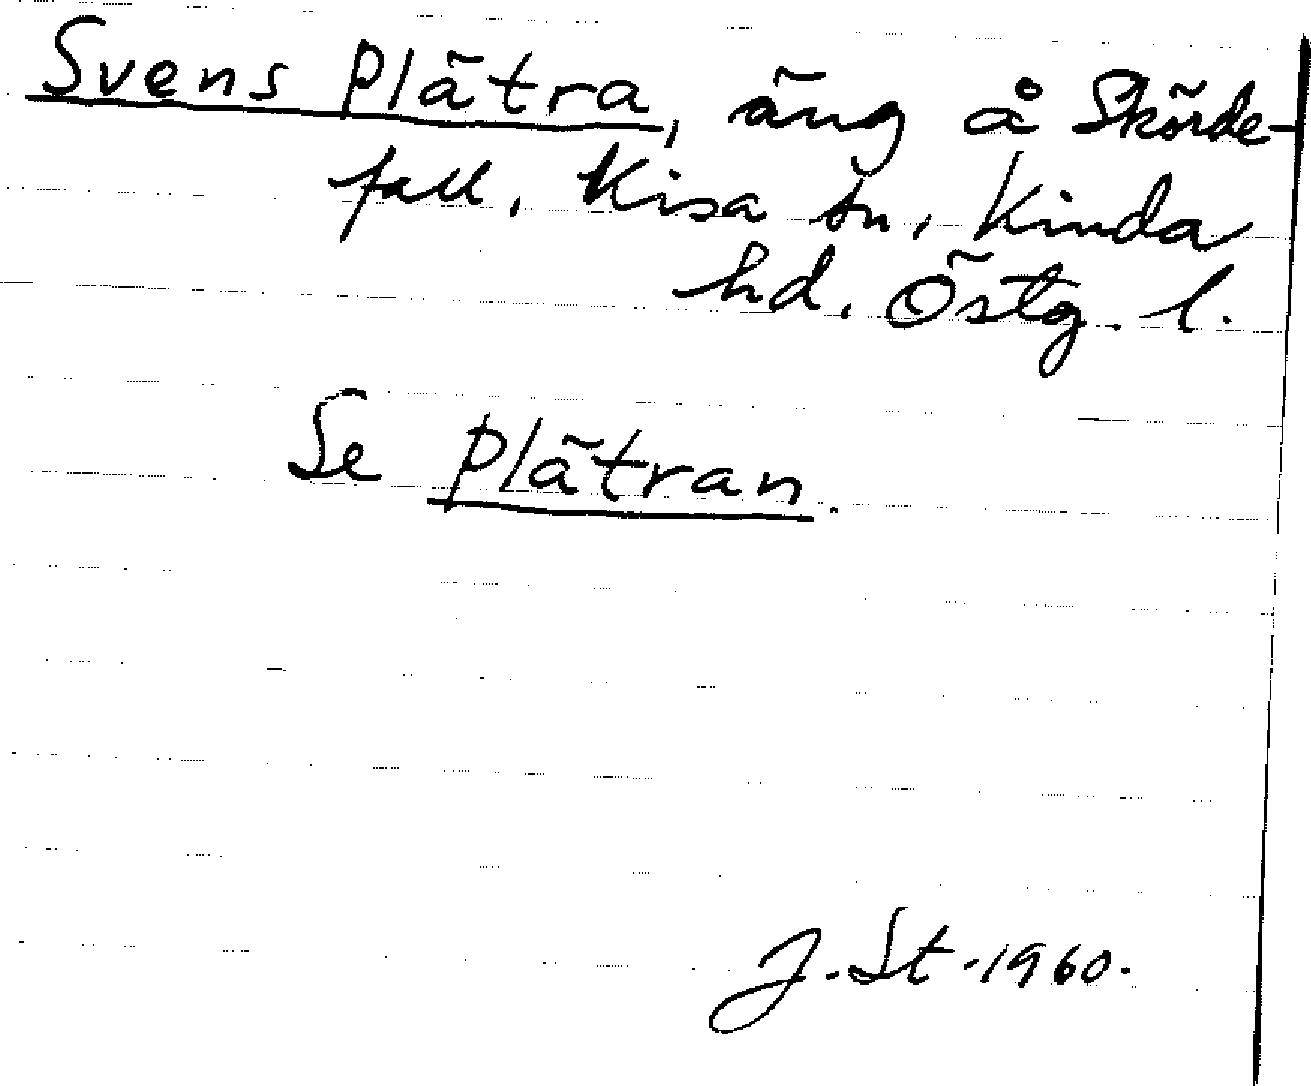 Svens Plätra, äng å Skörde-
fall, Kisa sn, Kinda
hd. Östg. l.
Se Plätran.
J. St. 1960.